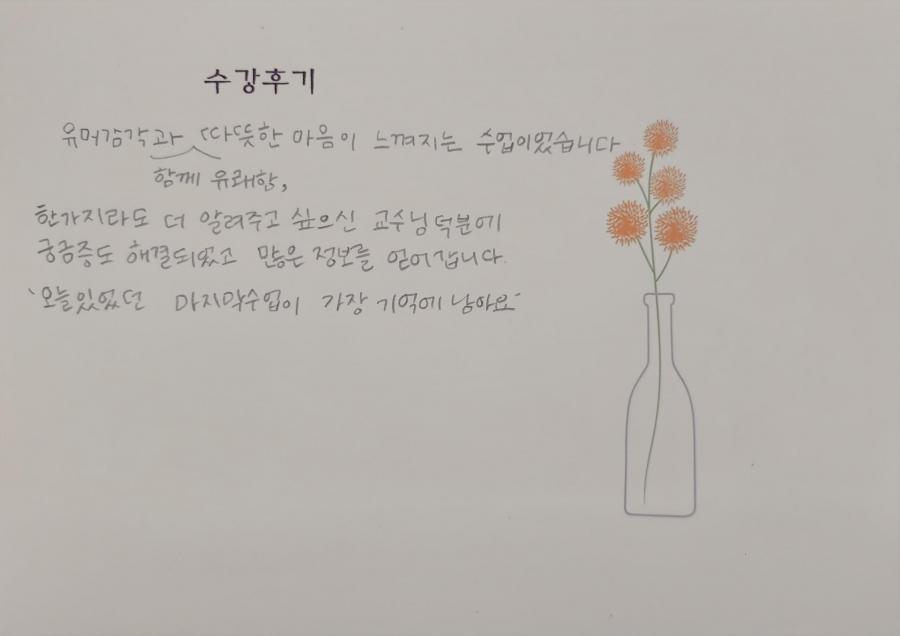 수강후기
유머감각과 따뜻한 마음이 느껴지는 수업이었습니다
함께 유쾌함,
한가지라도 더 알려주고 싶으신 교수님덕분에
궁금증도 해결되었고 많은 정보를 얻어갑니다.
`오늘있었던 마지막수업이 가장 기억에 남아요`